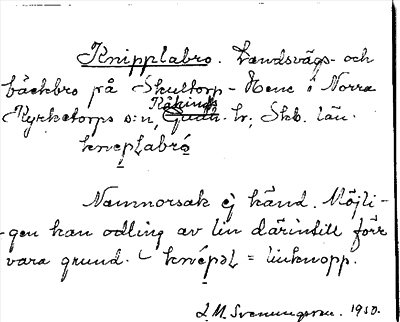 Knipplabro. Landsvägs- och
bäckbro på Skultorp - Hene i Norra
Kyrketorps s:n, Kåkinds hr, Skb. län.
knepLabró
Namnorsak ej känd. Möjli-
gen kan odling av lin därintill förr
vara grund. knépəL = linknopp.
L. M. Svenungsson. 1930.